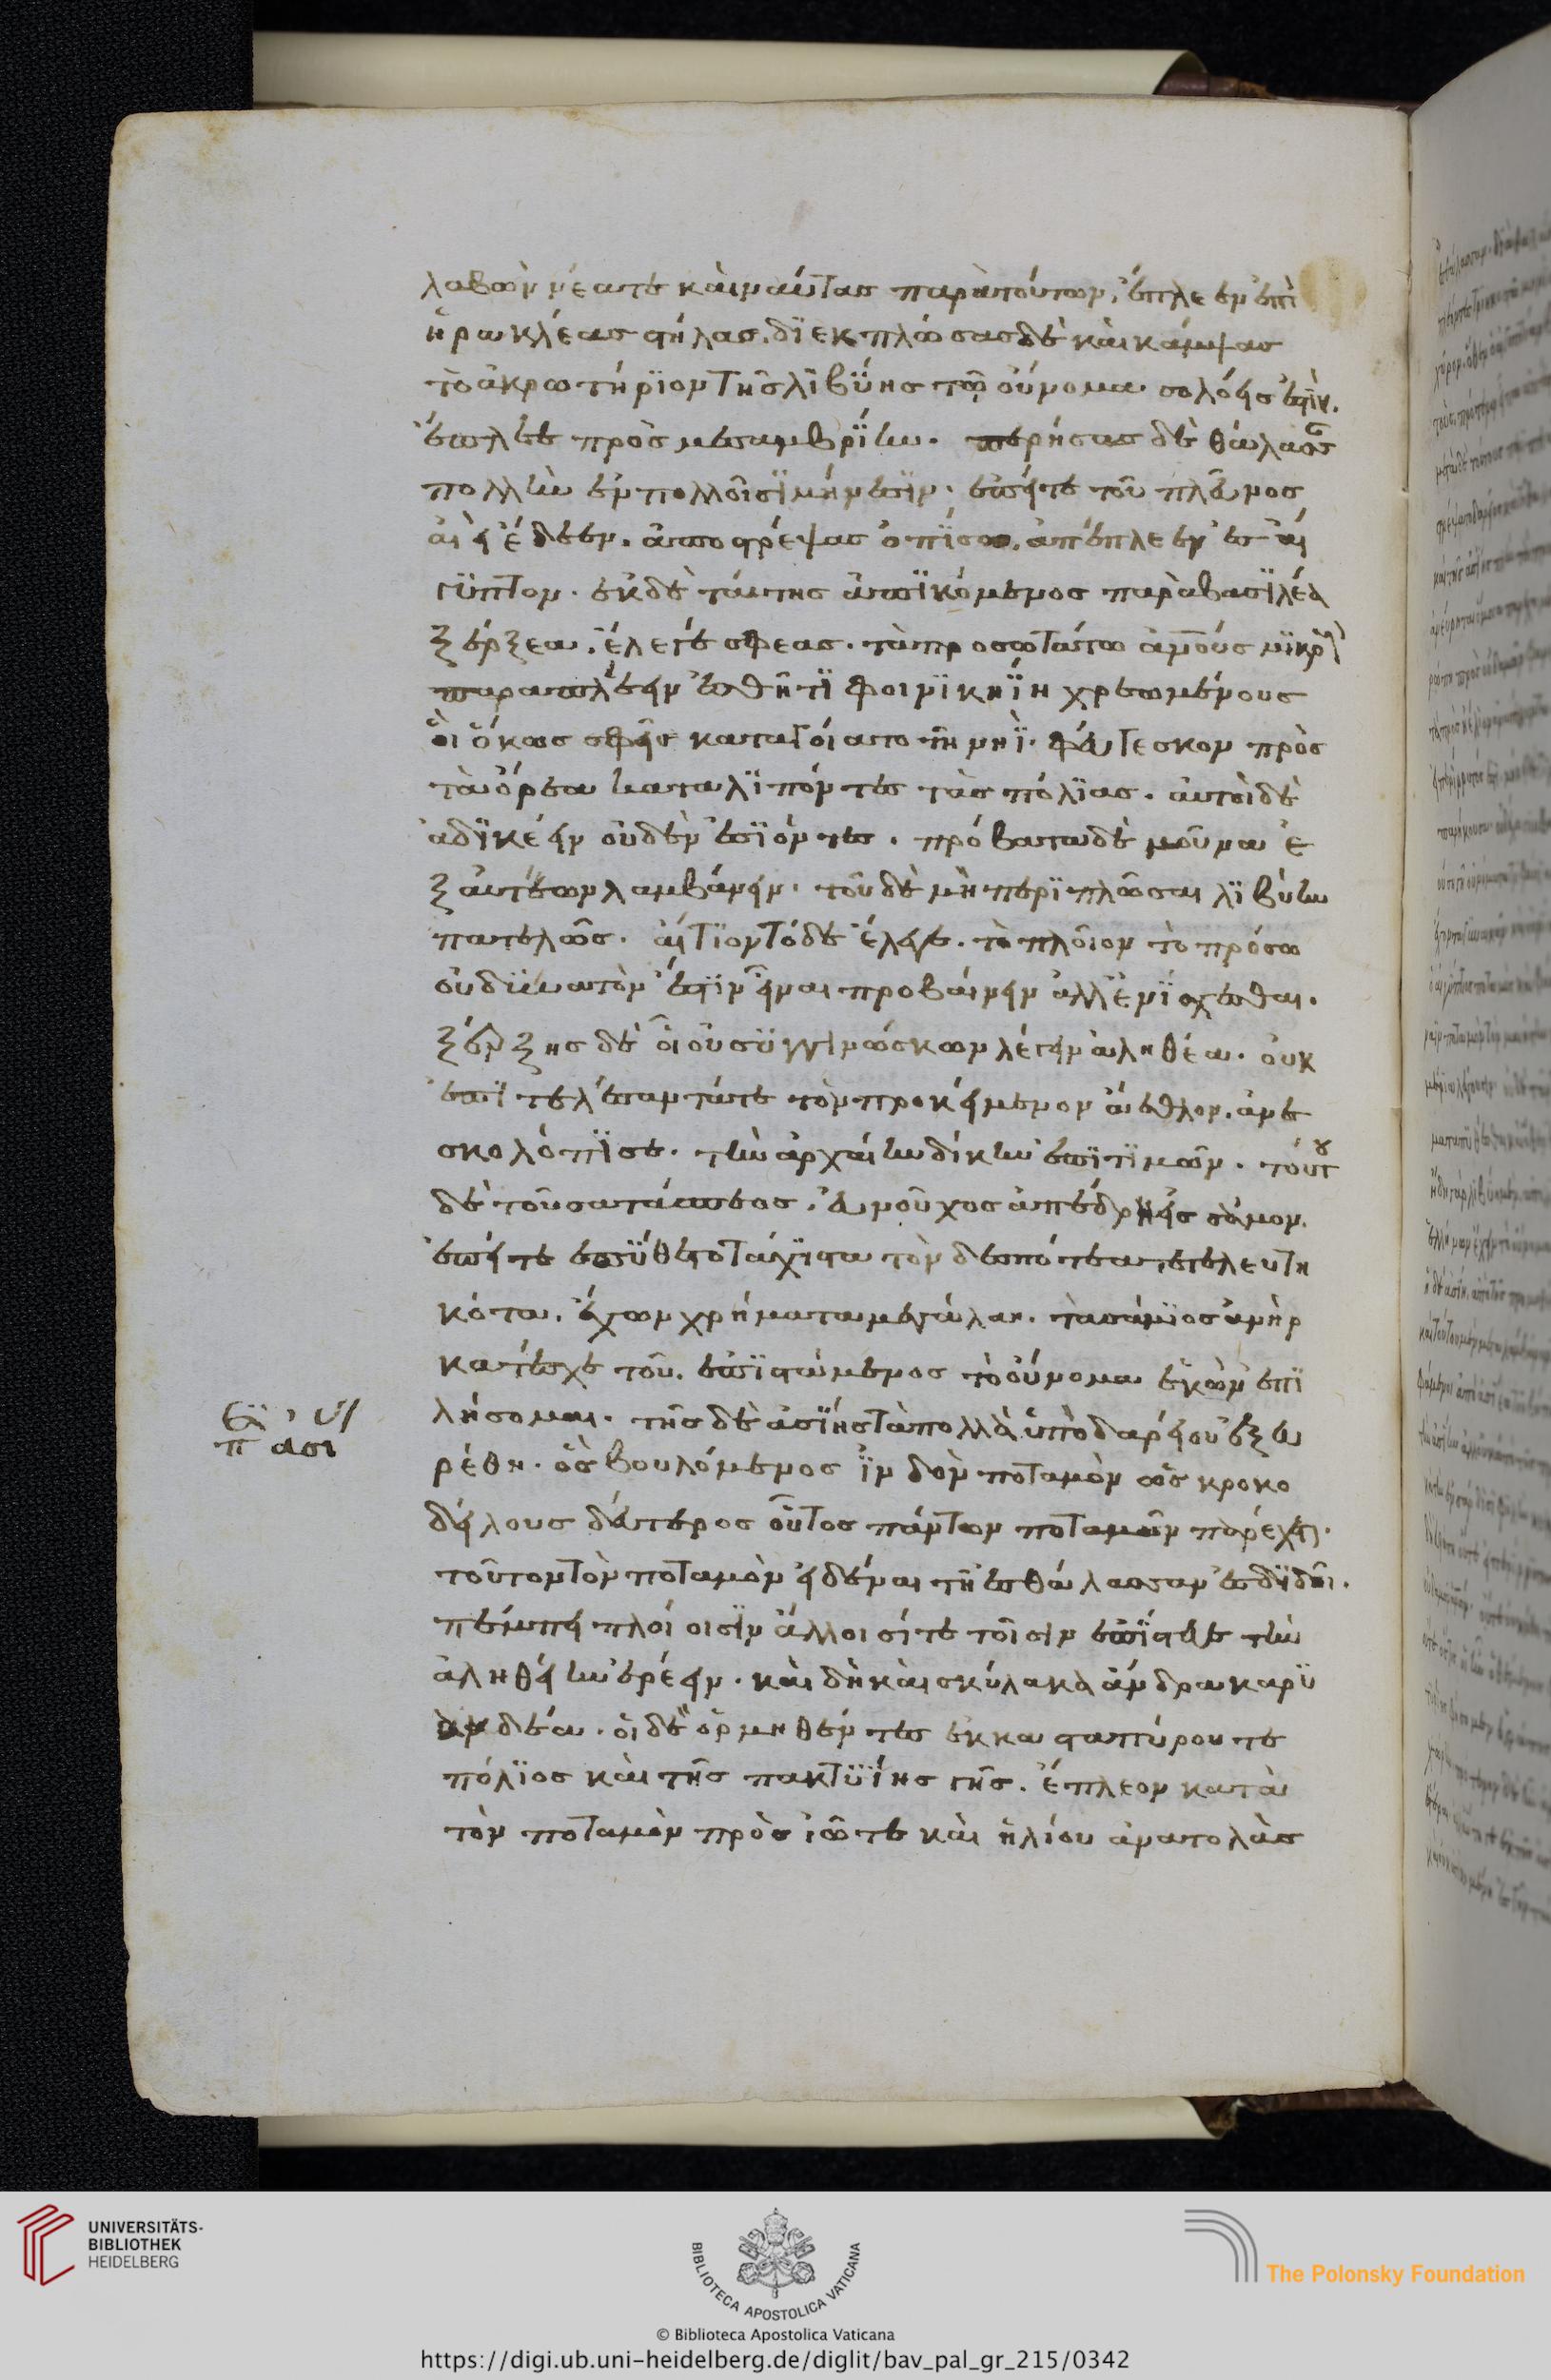 λαβὼν νέατε καὶ ναύτας παρὰ τούτων, ἔπλεεν ἐπὶ
ἡρακλέας στήλας. διεκπλώσας δὲ καὶ κάμψας
τὸ ἀκρωτήριον τῆς λιβύης τῶ οὔνομα σολόεις ἐστὶν.
ἔπλεε πρὸς μεσαμβρίην. περήσας δὲ θάλασσαν
πολλὴν ἐν πολλοῖσι μησὶν. ἐπείτε τοῦ πλεῦνος
αἰεὶ ἔδεεν. ἀποστρέψας ὀπίσω. ἀπέπλεεν ἐς αἴ
γυπτον. ἐκ δὲ ταύτης ἀπικόμενος παρὰ βασιλέα
ξέρξεα. ἔλεγέ σφεας. τὰ προσωτάτω ἀνους μικροὺς
παραπλέειν ἐσθῆτι φοινικηίη χρεωμένους
οἳ ὅκως σφεῖς καταγοίατο τῆ νηὶ. φεύγεσκον πρὸς
τὰ ὄρεα καταλιπόντες τὰς πόλιας. αὐτοὶ δὲ
ἀδικέειν οὐδὲν ἐσιόντες. πρόβατα δὲ μοῦνα ἐ
ξ αὐτέων λαμβάνειν. τοῦ δὲ μὴ περιπλῶσαι λιβύην
παντελῶς. αἴτιον τόδε ἔλεγε. τὸ πλοῖον τὸ πρόσω
οὐ δυνατὸν ἔτι εἶναι προβαίνειν ἀλλ' ἐνίσχεσθαι.
ξέρξης δὲ οἱ οὐ συγγινώσκων λέγειν ἀληθέα. οὐκ
ἐπιτελέσαντά τε τὸν προκείμενον ἄεθλον. ἀνε
σκολόπισε. τὴν ἀρχαίην δίκην ἐπιτιμῶν. τούτου
δὲ τοῦ σατάσπεος. εὐνοῦχος ἀπέδρη ἐς σάμον.
ἐπείτε ἐπύθετο τάχιστα τὸν δεσπότεα τετελευτη
κότα. ἔχων χρήματα μεγάλα. τὰ σάμιος ἀνὴρ
κατέσχε τοῦ. ἐπιστάμενος τὸ οὔνομα ἑκὼν ἐπι
λήσομαι. τῆς δὲ ἀσίης τὰ πολλὰ ὑπὸ δαρείου ἐξευ
ρέθη. ὃς βουλόμενος ἰνδὸν ποταμὸν ὃς κροκο
δείλους δεύτερος οὗτος πάντων ποταμῶν παρέχεται.
τοῦτον τὸν ποταμὸν εἰδέναι τῆ ἐς θάλασσαν ἐκδιδοῖ.
πέμπει πλοίοισιν ἄλλοισί τε τοῖσιν ἐπίστευε τὴν
ἀληθείην ἐρέειν. καὶ δὴ καὶ σκύλακα ἄνδρα καρυ
ανδέα. οἱ δὲ ὁρμηθέντες ἐκ κασταπύρου τε
πόλιος καὶ τῆς πακτυίης γῆς. ἔπλεον κατὰ
τὸν ποταμὸν πρὸς ἠῶ τε καὶ ἡλίου ἀνατολὰς
UNIVERSITÄTS-
BIBLIOTHEK
HEIDELBERG
BIBLIOTECA APOSTOLICA VATICANA
The Polonsky Foundation
© Biblioteca Apostolica Vaticana
https://digi.ub.uni-heidelberg.de/diglit/bav_pal_gr_215/0342